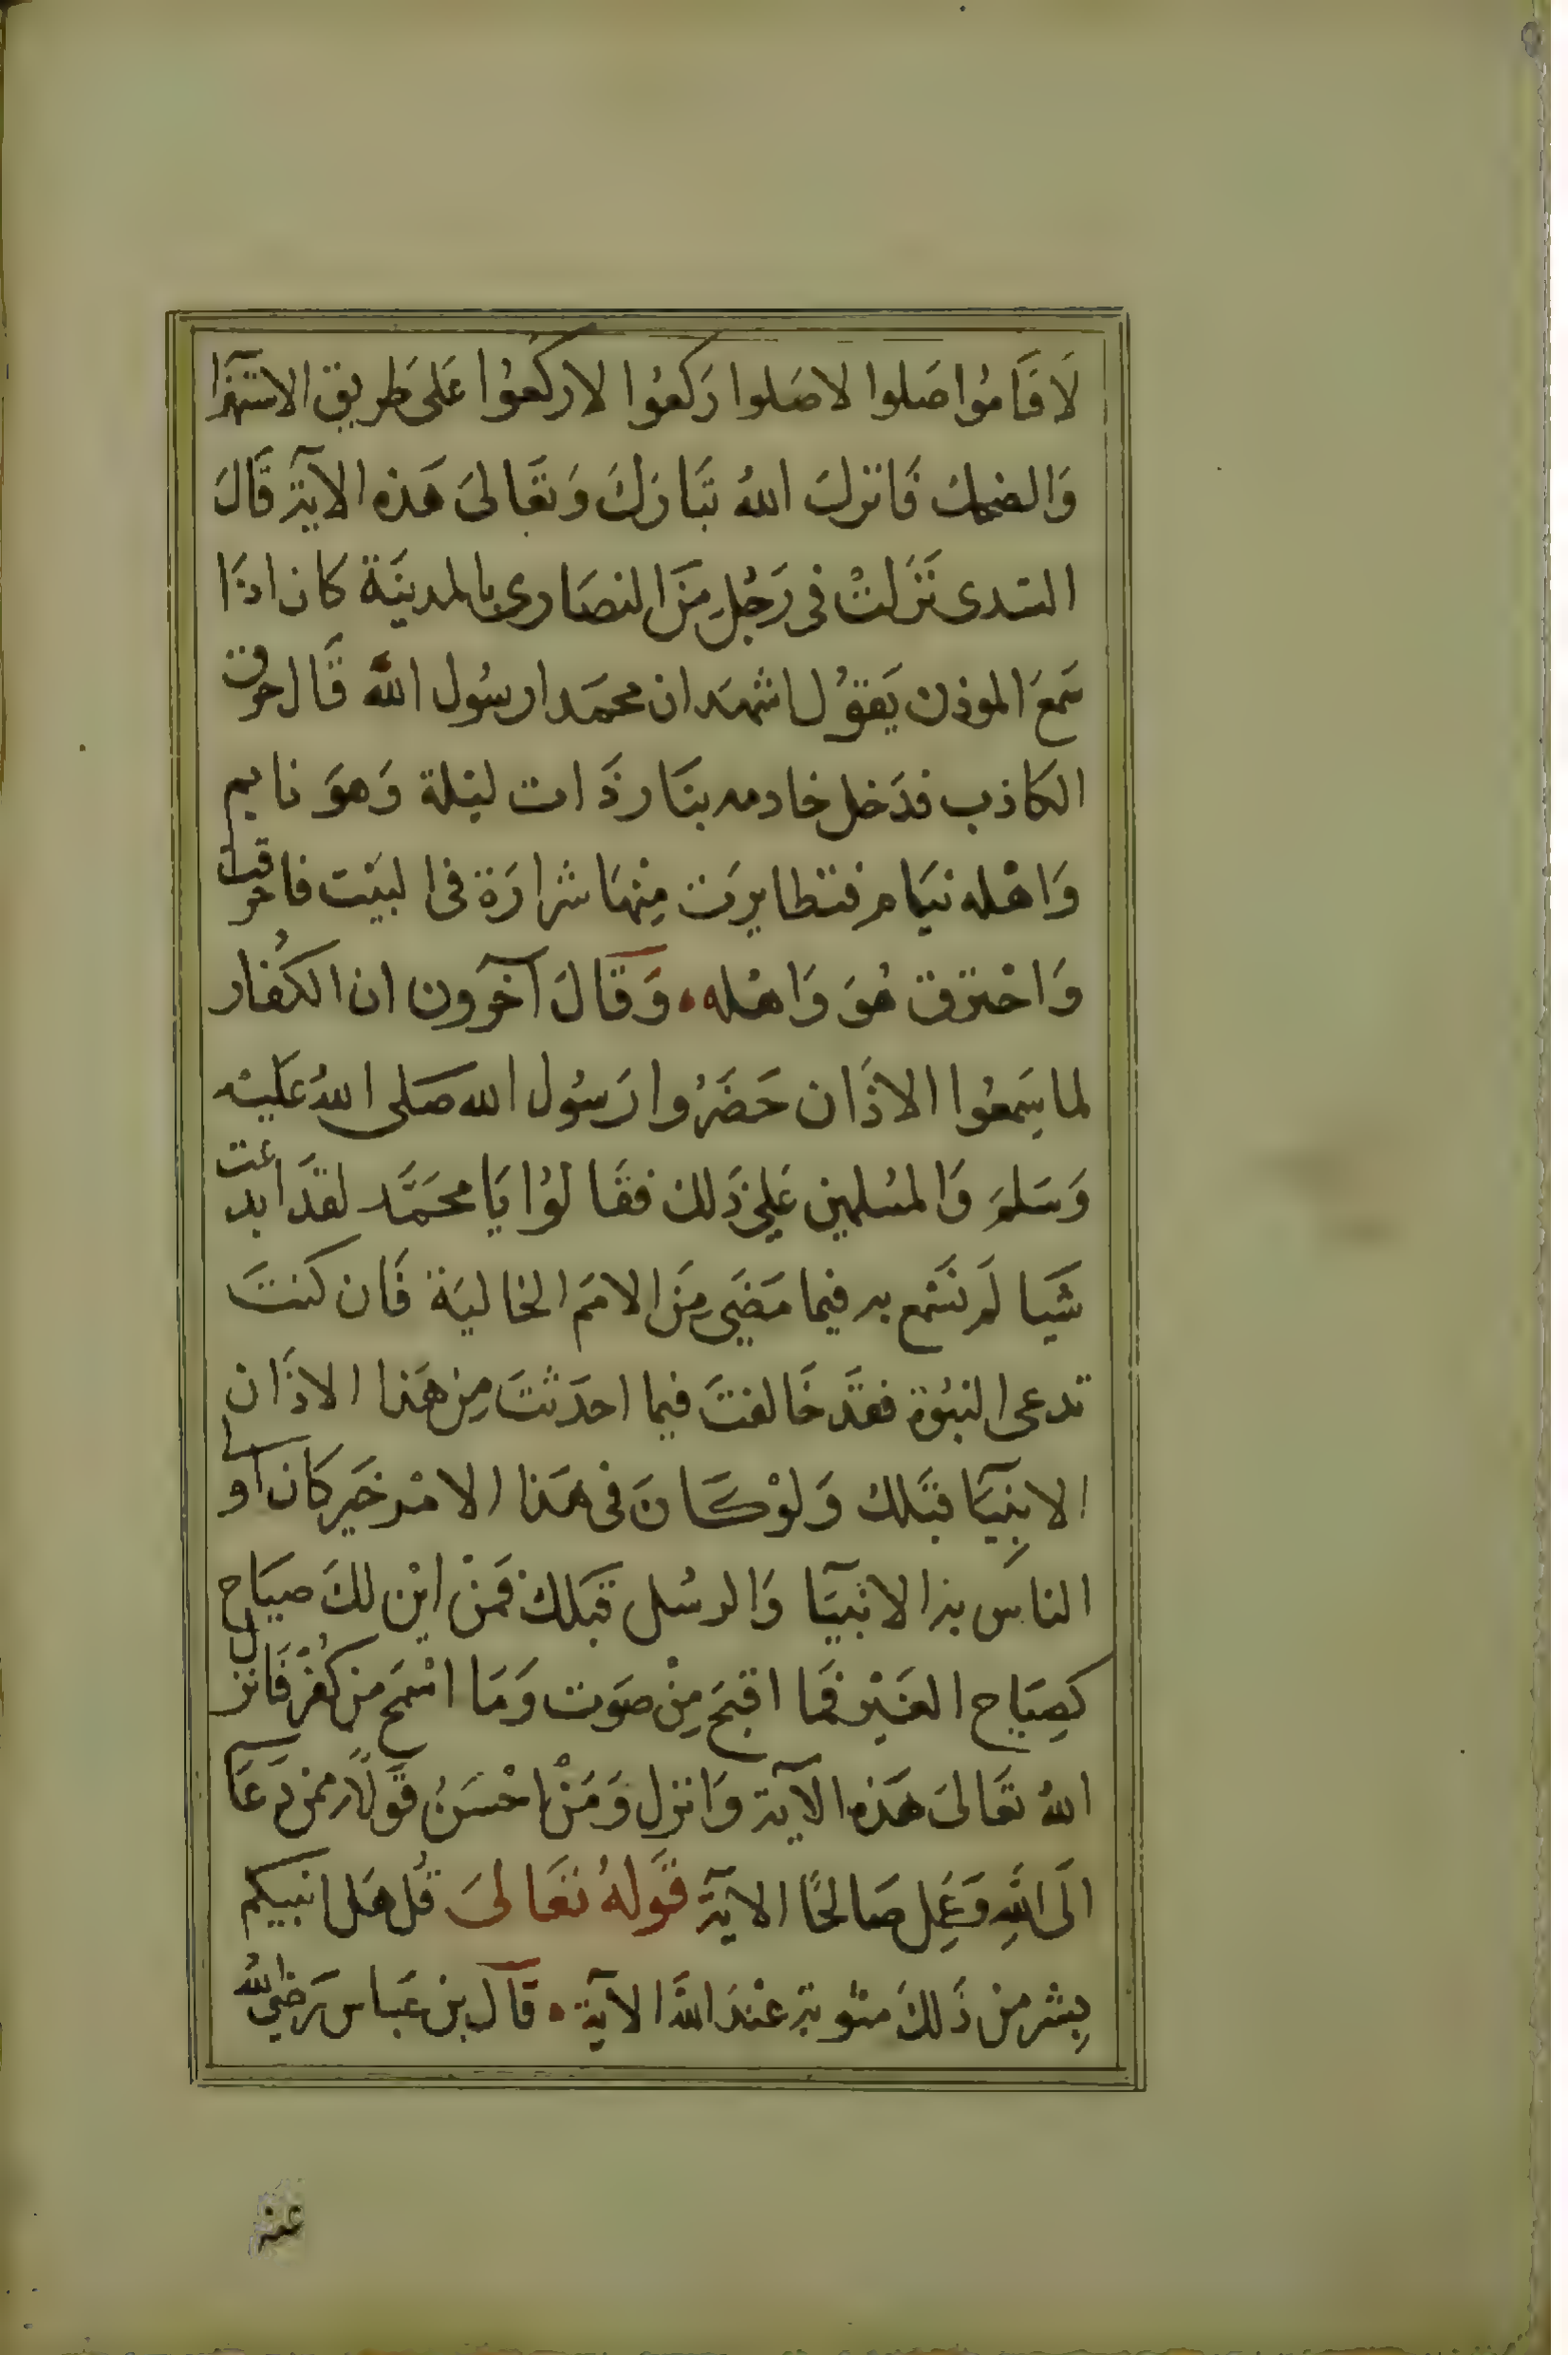 لَا قَامُوا صَلوا لاصَلوا رَكعُوا لا ركعُوا عَلى طريق الاستهزآ
وَالضحك فَانزلَ اللهُ تبَارَكَ وَتعَالىَ هَذه الآية قَالَ
السدى نَزَلتْ فى رَجُلٍ مِنَ النصَارى بالمدينَة كان اذَا
سَمعَ الموذن يَقوُل اشهَد ان محمَدا رسُول الله قَال حرق
الكاذب فدَخل خادمه بنَار ذَات ليْلة وَهوَ نايم
وَاهْله نيَام فتطايرَت مِنْهَا شرارَة فى البَيْت فاحرقت
وَاحْترق هُوَ وَاهْله وَقَالَ آخَرون ان الكُفار
لما سَمعُوا الاذَان حَضَرُوا رَسُول الله صَلى اللهُ عَليْه
وَسَلمَ وَالمسُلمين عَلى ذَلك فقَالوُا يَا محَمَّد لقدَ ابدعت
شَيا لَم نَسْمع به فيما مَضَى مِنَ الامَم الخاليَة فَان كنتَ
تدعى النبُوة فقَد خَالفتَ فيما احدَثتَ مِن هَذا الاذَان
الانبِيَآ قبَلك وَلوْ كَانَ فى هَذا الامْر خَير كَان اَولى
الناسَ به الانبيَآ وَالرسُل قَبَلكَ فمَنْ ايْن لكَ صيَاح
كصِيَاح العَيْر فمَا اقبَح مِنْ صوَت وَمَا اسْمَج مِن كُفْرٍ فَانزل
اللهُ تعَالىَ هَذه الآية وَانزل وَمَنْ احْسَنُ قَولاً ممن دَعَا
الَى اللَّهِ وَعَمِل صَالحًا الآية قَولهُ تعَالىَ قُل هَل انبيكم
بِشرٍ من ذَلكَ مثوبة عنْدَ اللهَ الآية قَال بن عَباس رَضىَ اللهُ
عنه